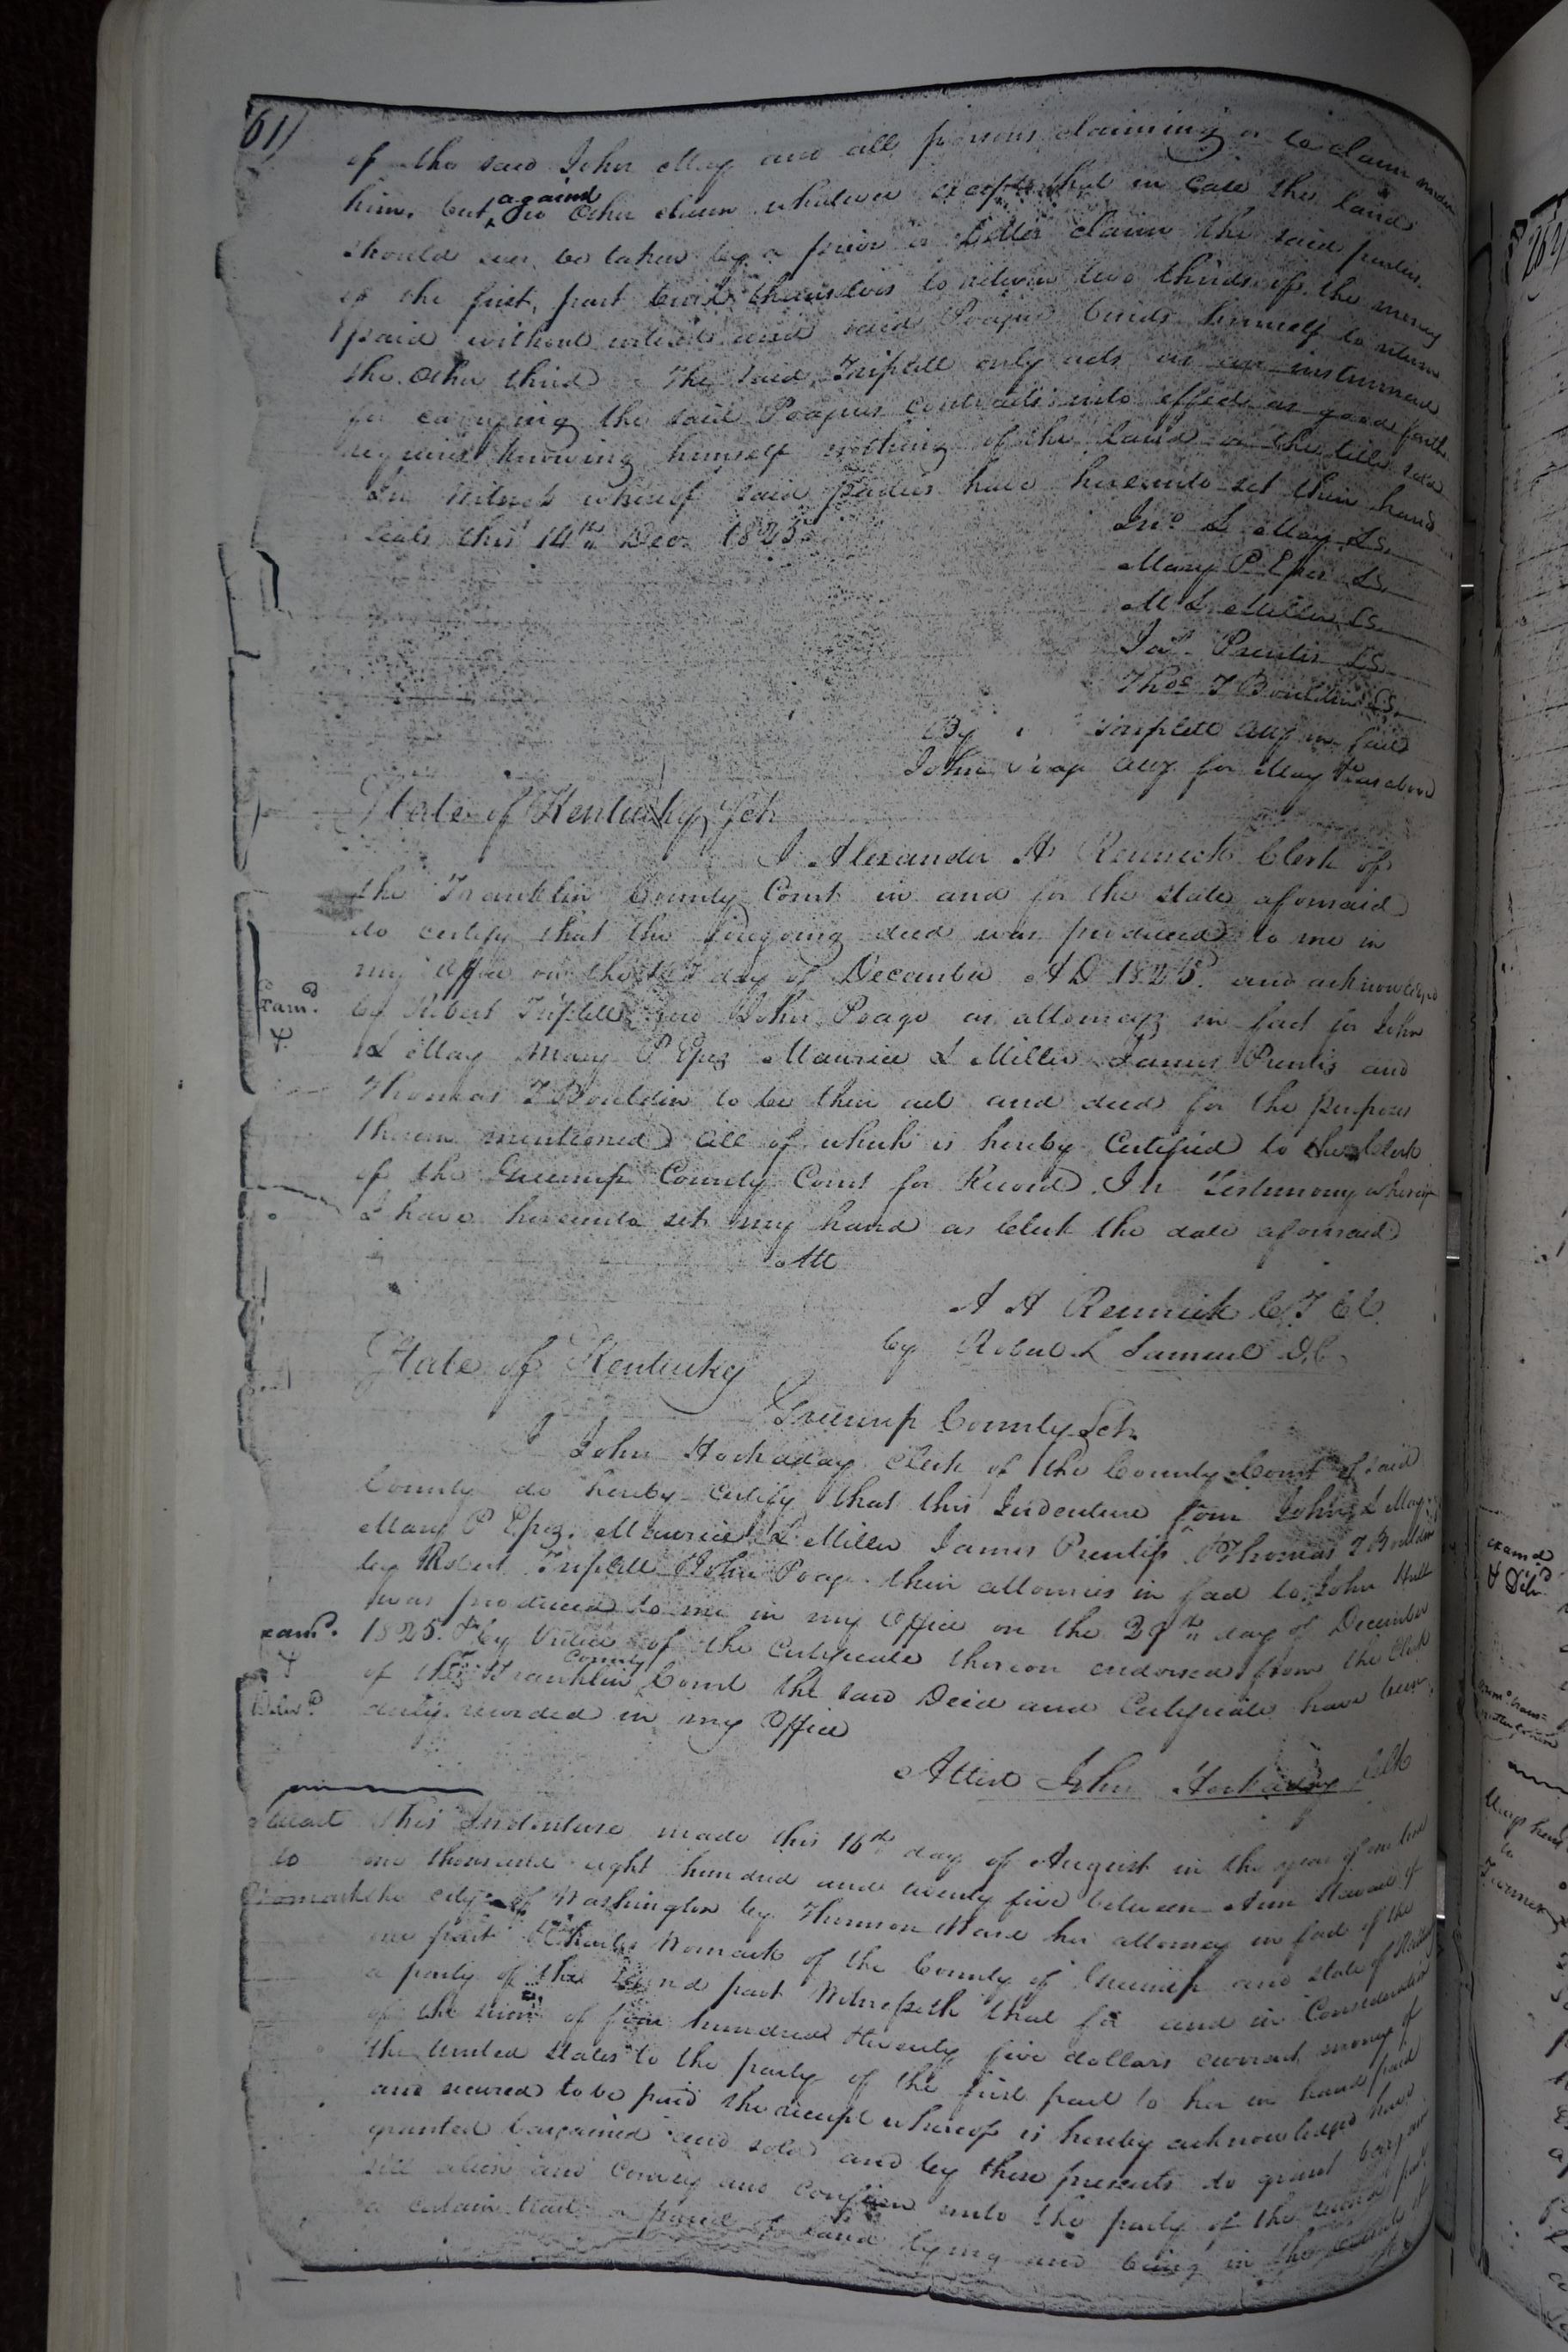 61
of the said John May and all persons claiming or to claim under
him, but against no other claim whatever except that in case the land
should ever be taken by a prior or better claim the said parties
of the first part bind themselves to return two thirds of the money
paid without interest and said Poague binds himself to return
the other third. The said Triplett only acts as an instrument
for carrying the said Poagues contracts into effect as good faith
required knowing himself nothing of the land or the title sold
In Witness whereof said parties have hereunto set their hand
Seals this 14th Dec. 1825
Jno L May LS.
Mary P Epes LS.
M L Miller LS.
Jas Prentis LS.
Thos T Bouldin LS.
By Triplett atty in fact
John Poage atty for May &c as above
State of Kentucky Sct
I Alexander H Rennick Clerk of
the Franklin County Court in and for the state aforesaid
do certify that the foregoing deed was produced to me in
my office on the day of December A D 1825. and acknowledged
by Robert Triplett and John Poage as attorneys in fact for John
L May Mary P Epes Maurice L Miller James Prentis and
Thomas T Bouldin to be their act and deed for the purposes
therein mentioned all of which is hereby Certified to the Clerk
of the Greenup County Court for Record. In Testimony whereof
I have hereunto set my hand as Clerk the date aforesaid
Exam.d
&
Att
A H Rennick C F C C
by Robert L Samuel D.C.
State of Kentucky
Greenup County Sct.
I John Hockaday Clerk of the County Court of said
County do hereby certify that this Indenture from John L May
Mary P Epes, Maurice L Miller James Prentis & Thomas T Bouldin
by Robert Triplett & John Poage their attornies in fact to John Hull
was produced to me in my Office on the 29th day of December
1825. & by virtue of the Certificate thereon endorsed from the Clerk
of the Franklin County Court the said Deed and Certificate have been
duly recorded in my Office
Exam.d
&
Delv.d
Attest John Hockaday Clk
Stewart
to
Womack
This Indenture made this 16th day of August in the year of our Lord
one thousand eight hundred and twenty five between Ann Stewart of
the city of Washington by Thomson Ware her attorney in fact of the
one part & Charles Womack of the County of Greenup and state of Kentucky
a party of the second part Witnesseth that for and in Consideration
of the sum of four hundred & twenty five dollars current money of
the United States to the party of the first part to her in hand paid
and secured to be paid the receipt whereof is hereby acknowledged hath
granted bargained and sold and by these presents do grant bargain
sell alien and convey and confirm unto the party of the second part
a certain tract or parcel of land lying and being in the county of